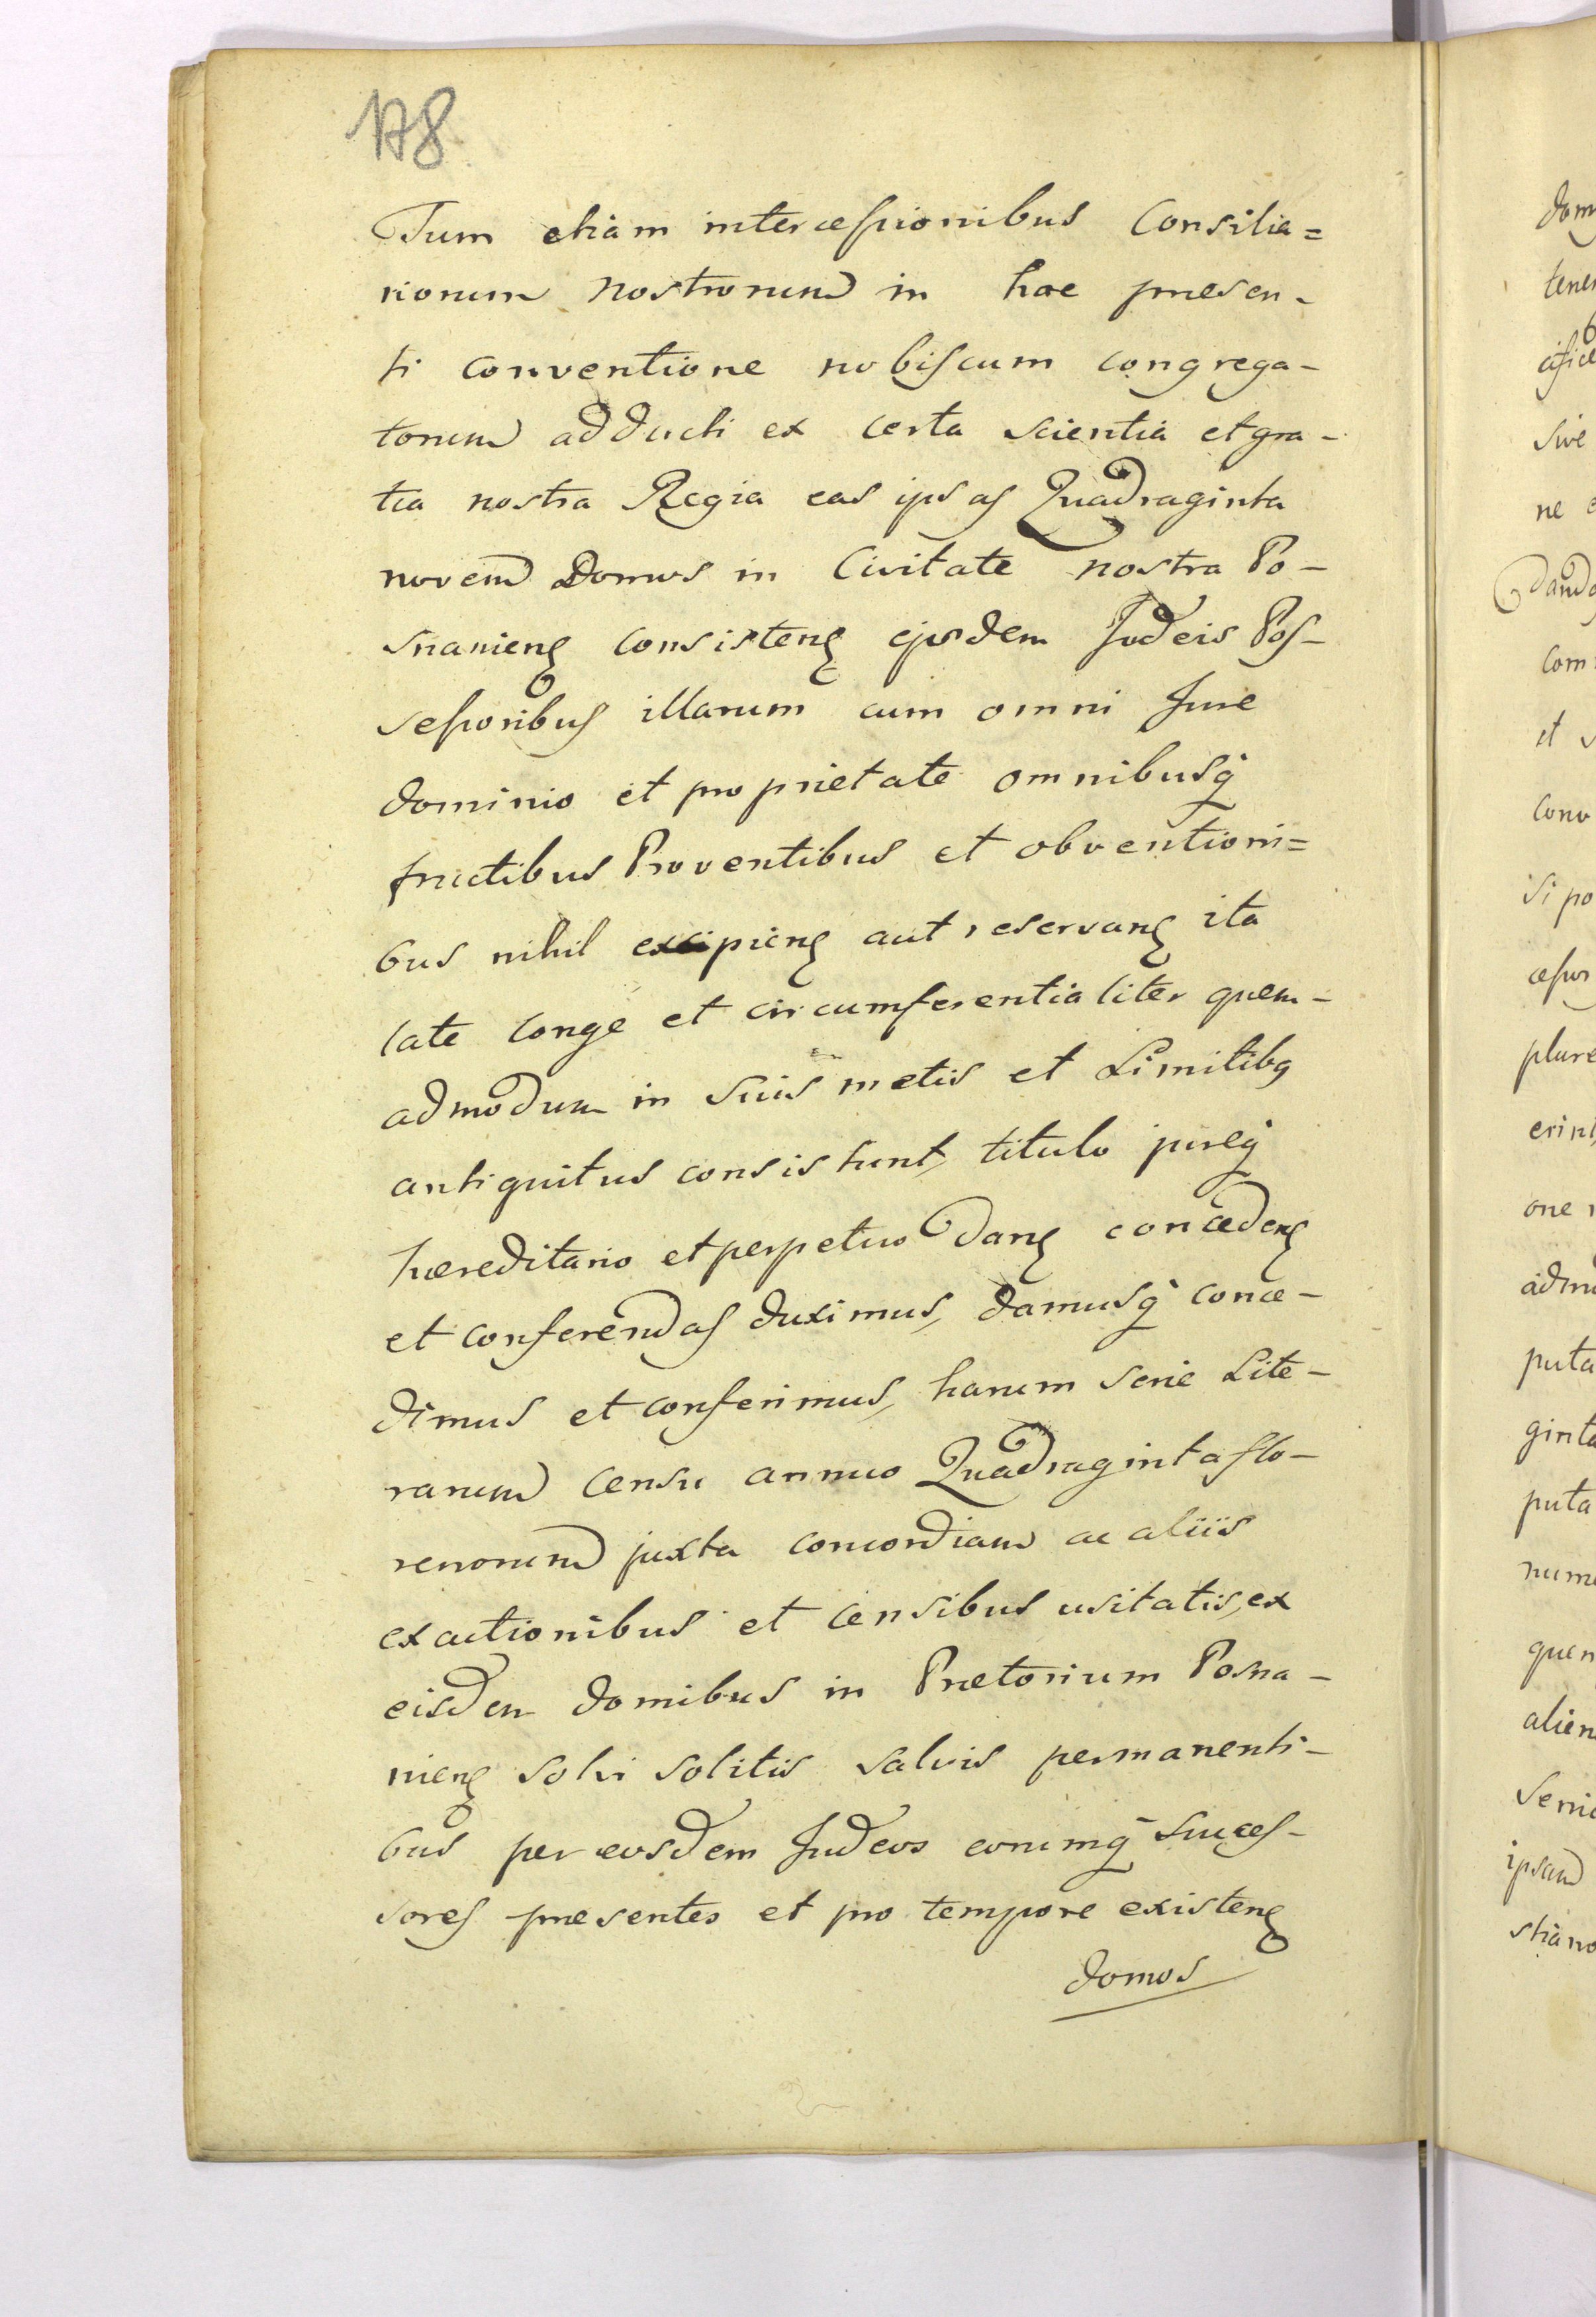 178.
Tum etiam intercessionibus Consilia=
riorum nostrorum in hac præsen-
ti conventione nobiscum congrega-
torum adducti ex certa scientia et gra-
tia nostra Regia eas ipsas Quadraginta
novem Domus in Civitate nostra Po-
snanienꝭ consistenꝭ ejusdem Judeis Pos-
sessoribus illarum cum omni Jure
dominio et proprietate omnibusq́
fructibus Proventibus et obventioni=
bus nihil excipienꝭ aut reservanꝭ ita
late longe et circumferentialiter quem-
admodum in suis metis et Limitibꝫ
antiquitus consistunt, titulo jureq́
hæreditario et perpetuo danꝭ concedenꝭ
et conferendas duximus, damusq́ conce-
dimus et conferimus, harum serie Lite-
rarum Censu annuo Quadraginta flo-
renorum juxta concordiam ac aliis
exactionibus et censibus usitatis, ex
eisdem domibus in Prætorium Posna-
nienꝭ solvi solitis salvis permanenti-
bus per eosdem Judeos eorumq́ Succes-
sores præsentes et pro tempore existenꝭ
domos
dom
tene
sive
ne
Danda
com
et
conv
si po
plure
erint
one
admo
puta
ginta
puta
nume
quen
alien
ipsam
stiano